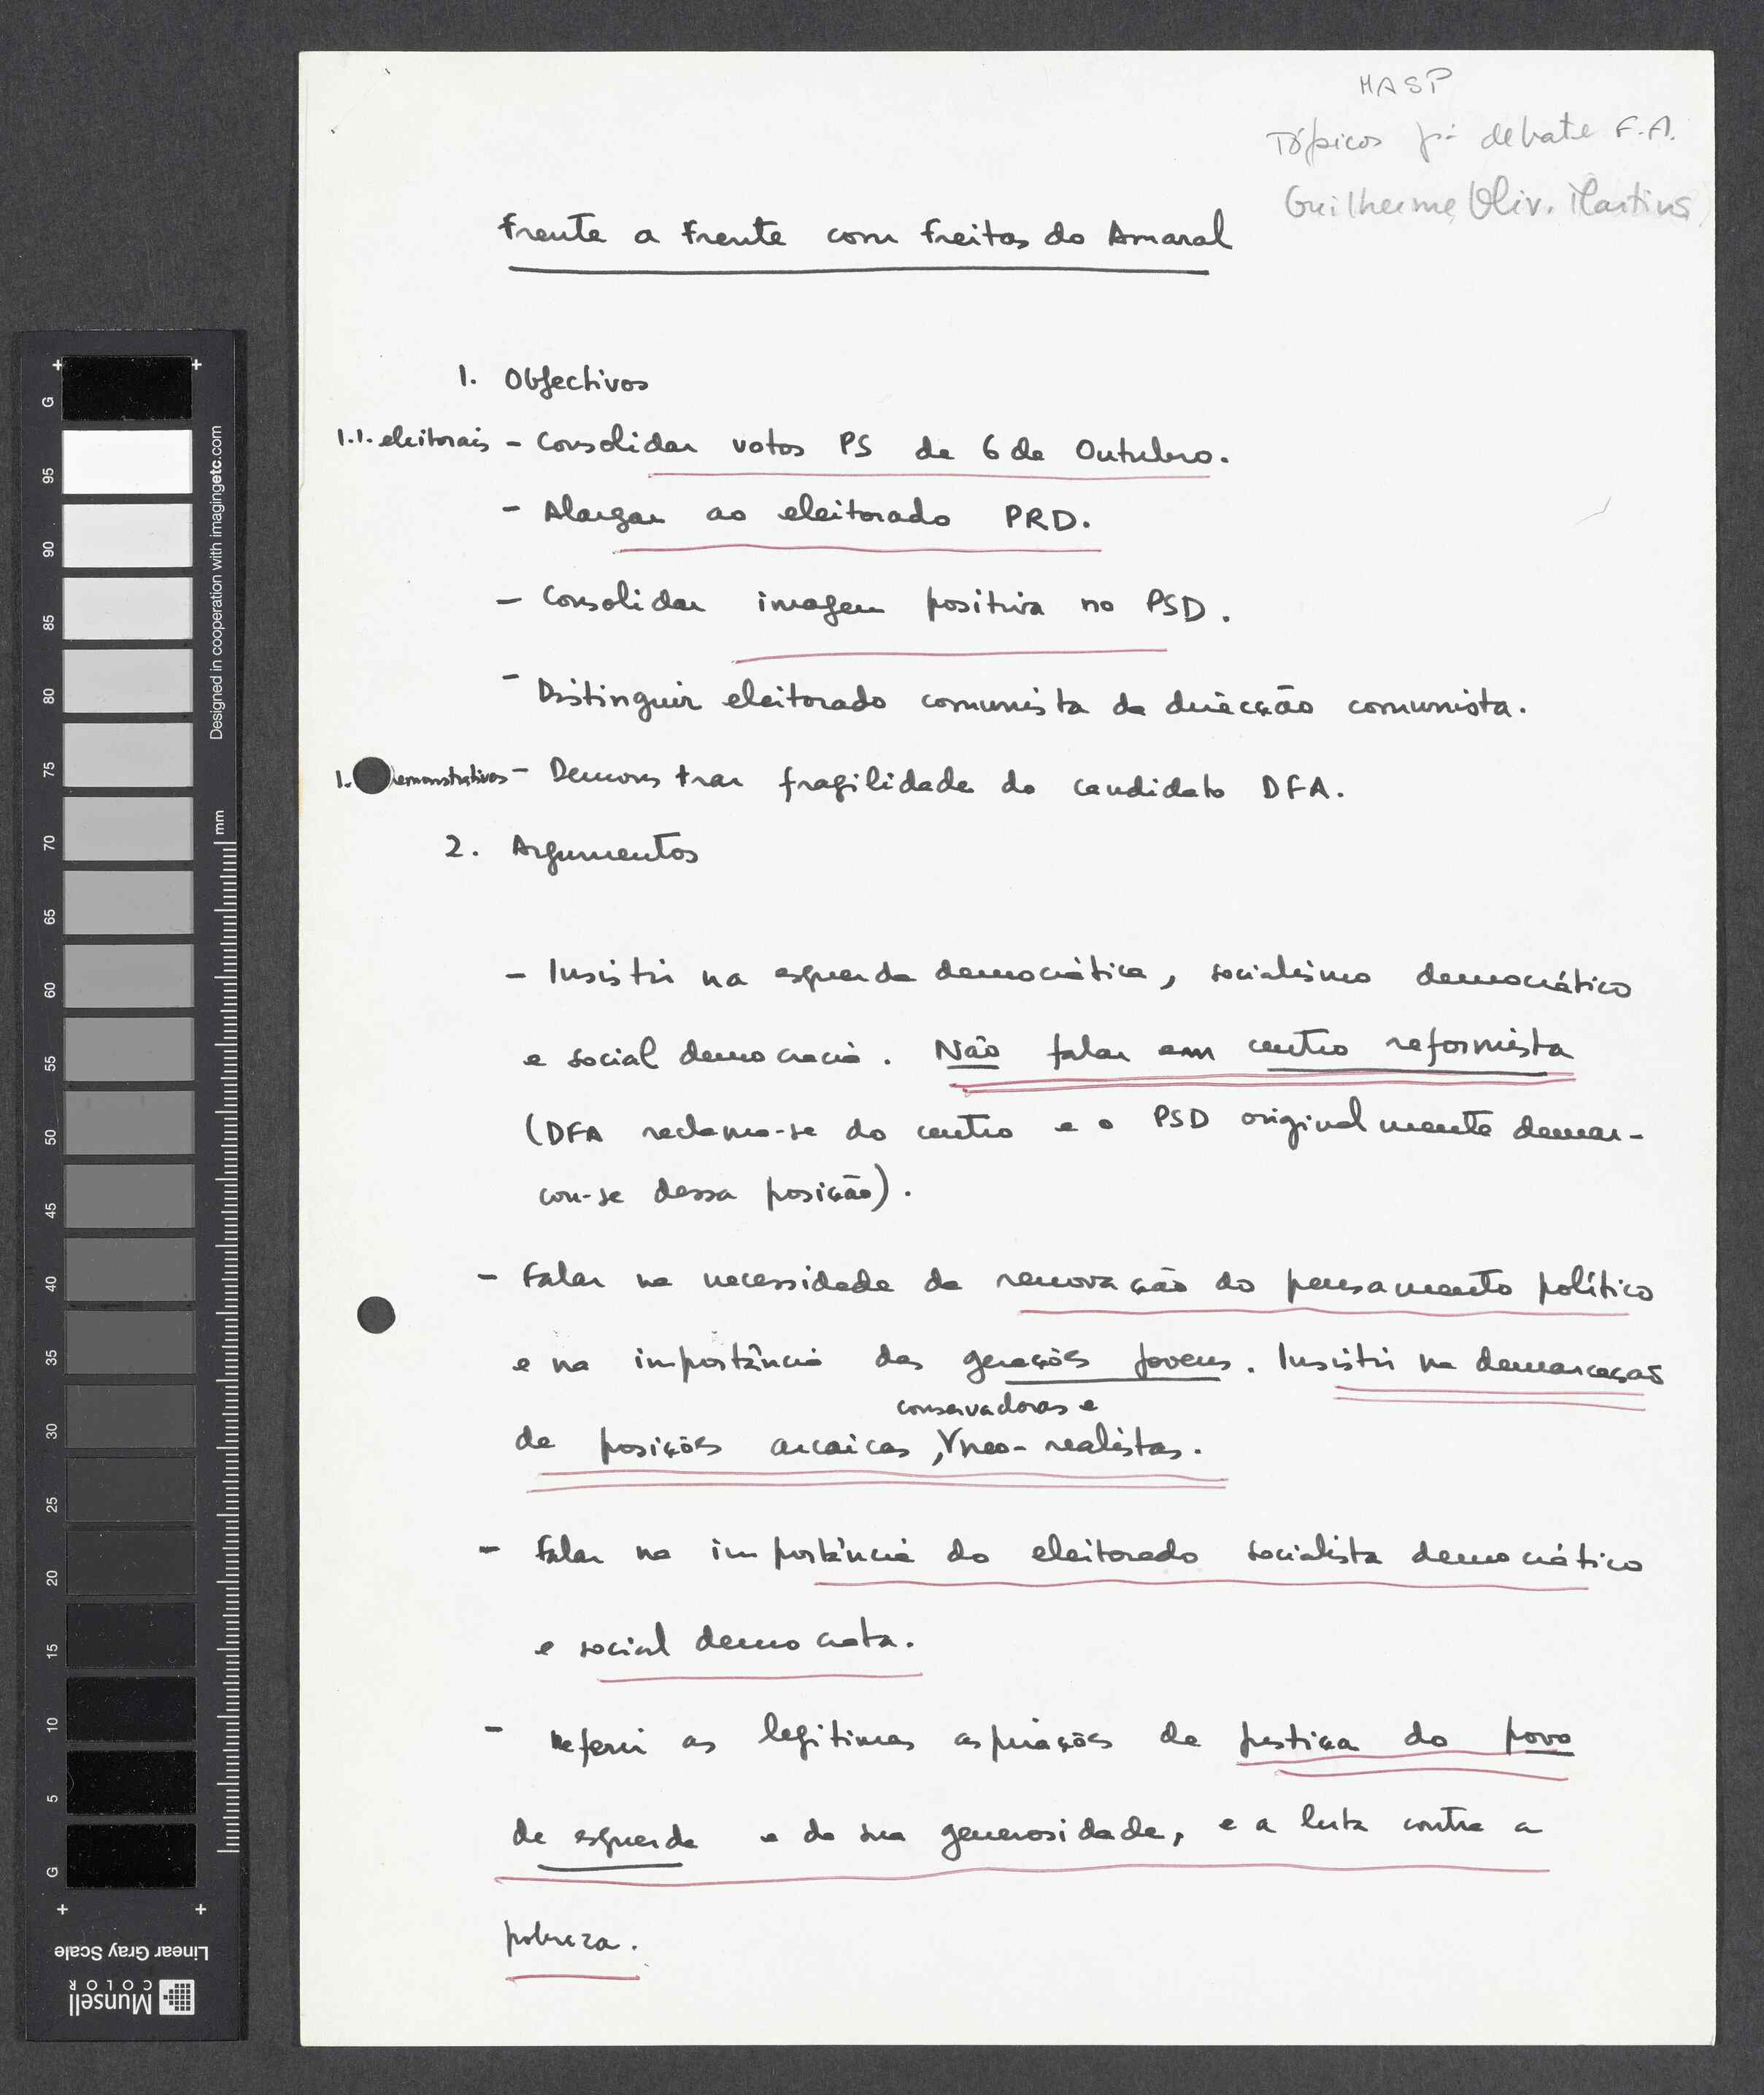 MASP
Tópicos p/ debate F.A.
Guilherme Oliv. Martins
Frente a Frente com Freitas do Amaral
1. Objectivos
1.1. eleitorais - Consolidar votos PS de 6 de Outubro.
- Alargar ao eleitorado PRD.
- Consolidar imagem positiva no PSD.
- Distinguir eleitorado comunista da direcção comunista.
1. emonstrativos - Demonstrar fragilidade do candidato DFA.
2. Argumentos
- Insistir na esquerda democrática, socialismo democrático
e social democracia. Não falar em centro reformista
(DFA reclama-se do centro e o PSD originalmente demar-
cou-se dessa posição).
- Falar na necessidade da renovação do pensamento político
e na importância das gerações jovens. Insistir na demarcação
conservadoras e
de posições arcaicas, neo-realistas.
- Falar na importância do eleitorado socialista democrático
e social democrata.
- Referir as legítimas aspirações de justiça do povo
de esquerda e da sua generosidade, e a luta contra a
pobreza.
Designed in cooperation with imagingetc.com
mm
G
95
90
85
80
75
70
65
60
55
50
45
40
35
30
25
20
15
10
5
G
Linear Gray Scale
Munsell
COLOR